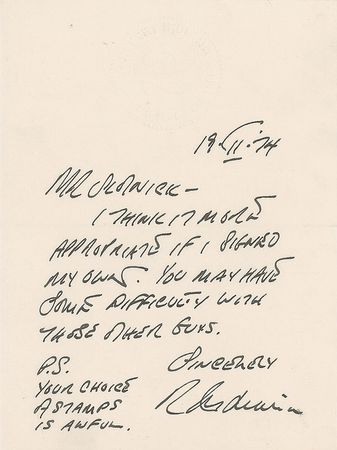 19·II·74
MR SLOTNICK –
I THINK IT MORE
APPROPRIATE IF I SIGNED
MY OWN. YOU MAY HAVE
SOME DIFFICULTY WITH
THOSE OTHER GUYS.
P.S. SINCERELY
YOUR CHOICE
A STAMPS
IS AWFUL.